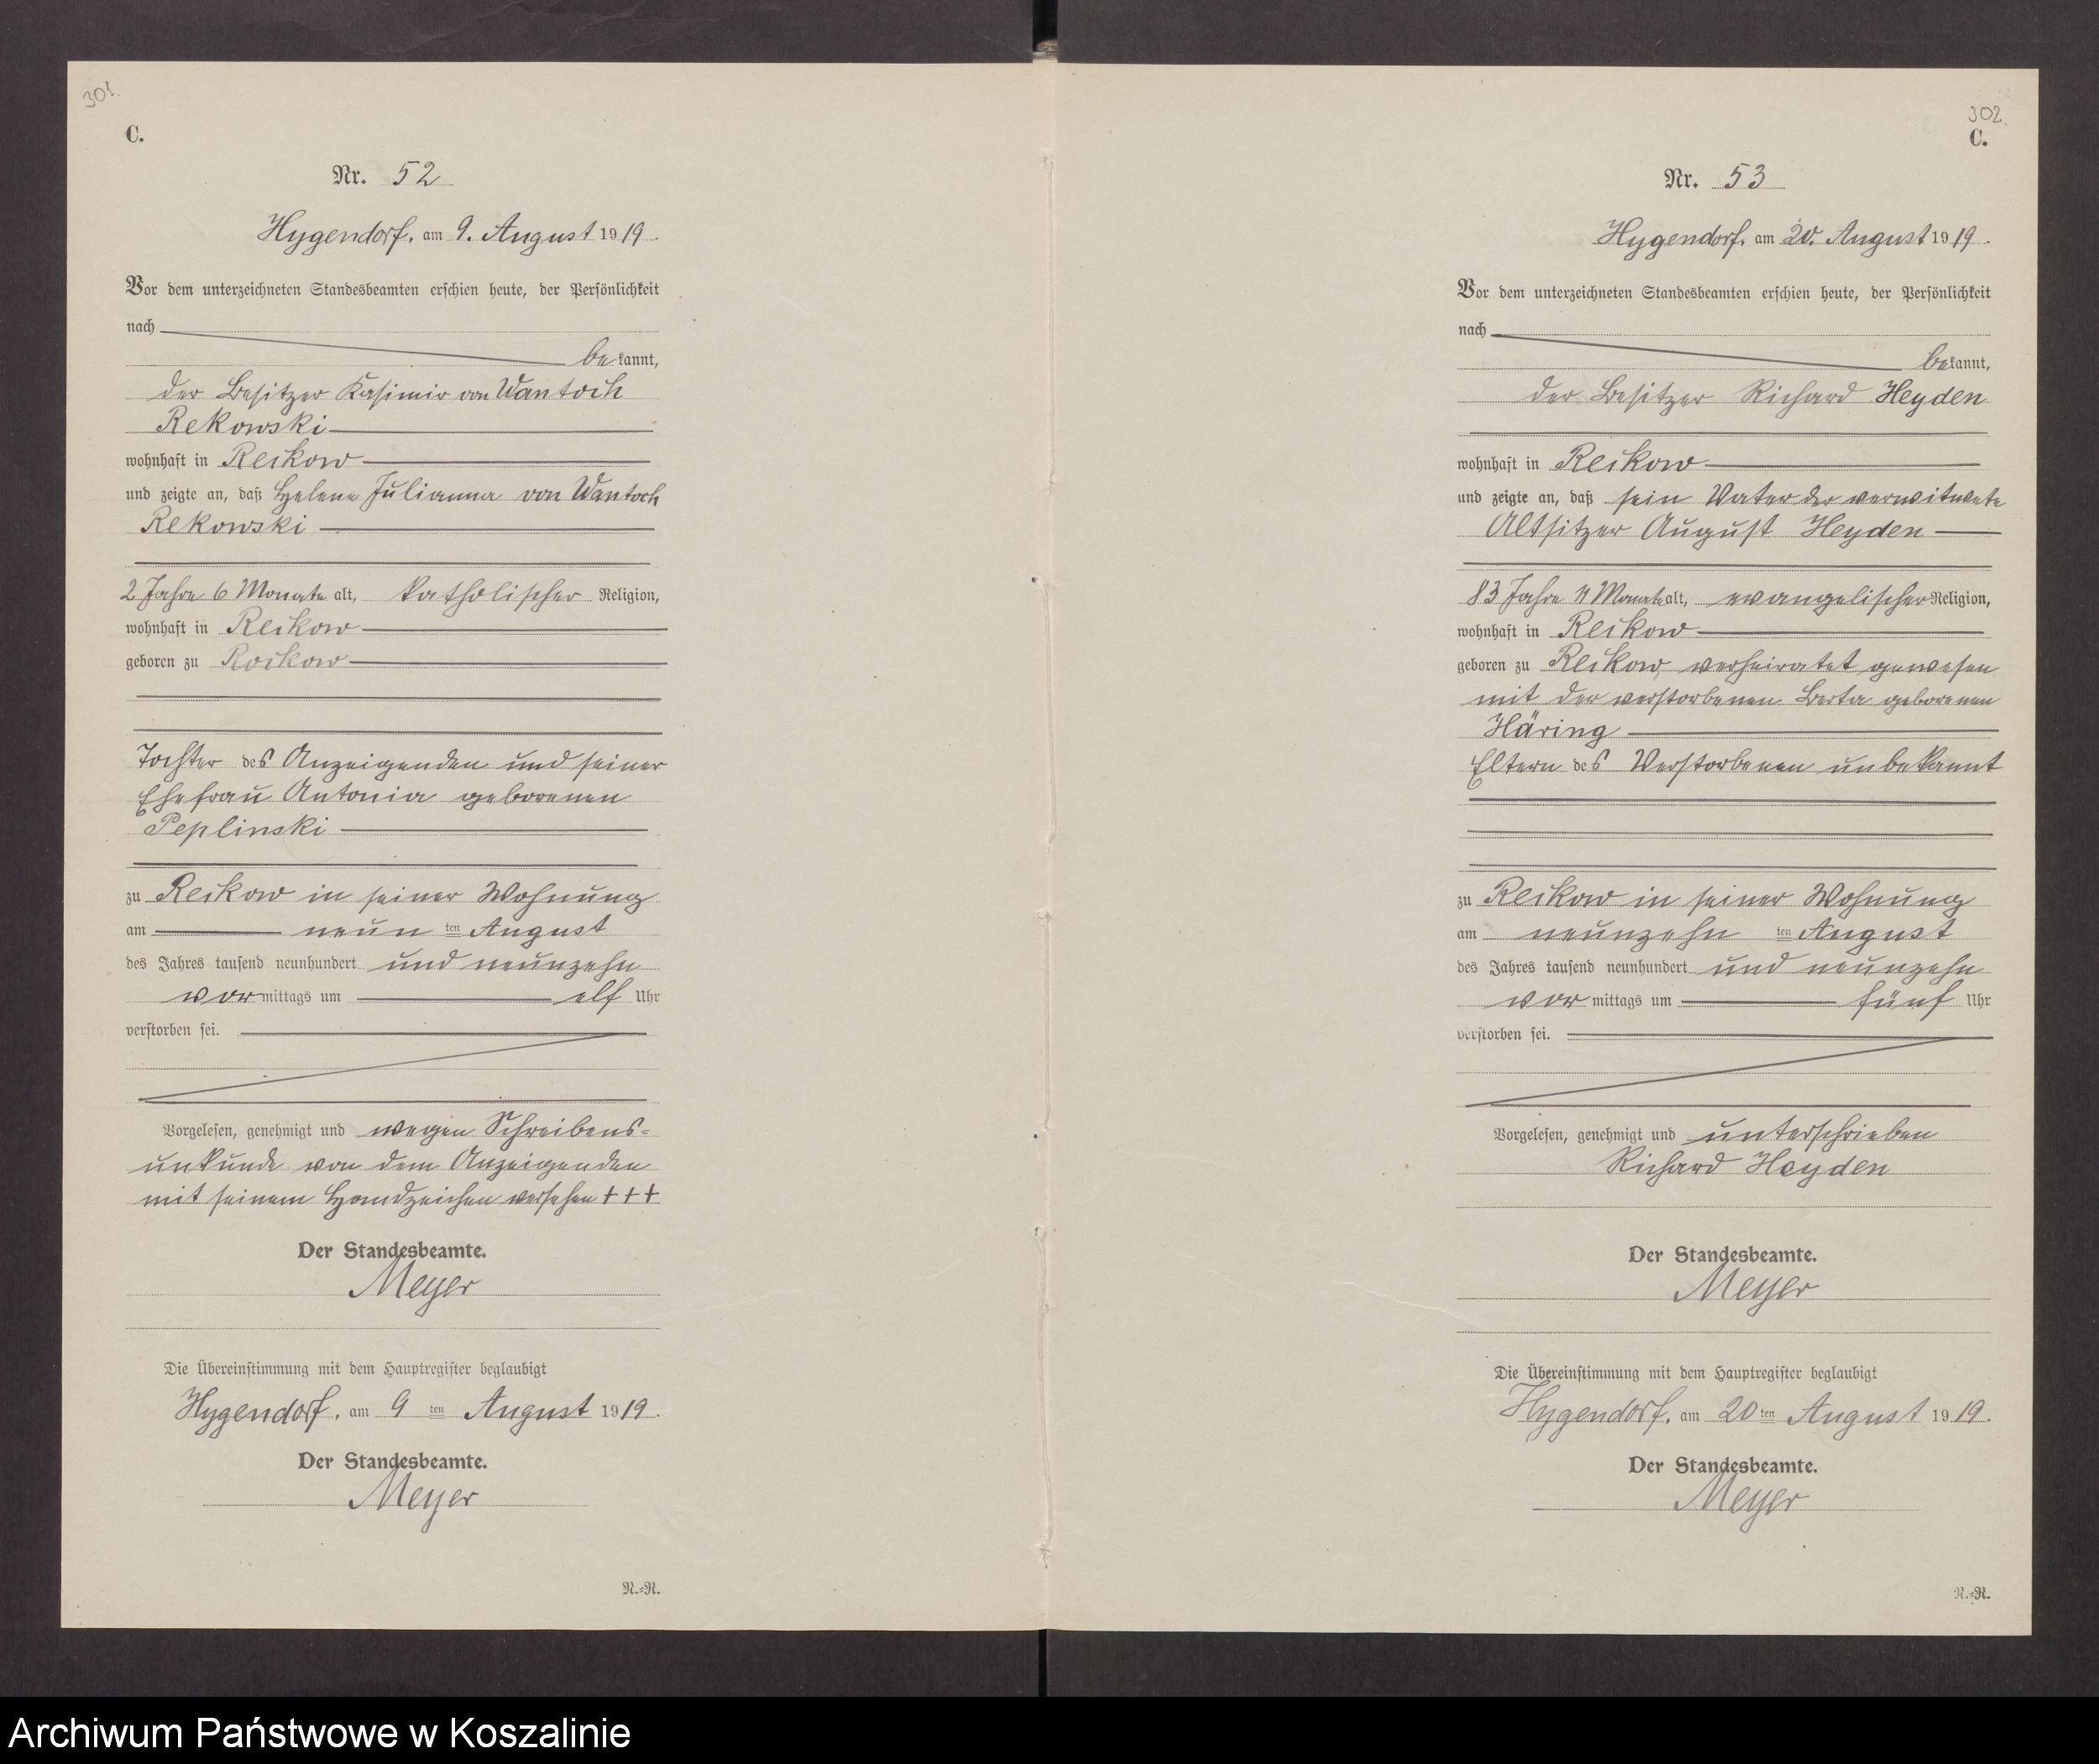 301.
C.
Nr. 52
Hygendorf, am 9. August 1919.
Vor dem unterzeichneten Standesbeamten erschien heute, der Persönlichkeit
nach
bekannt,
der Besitzer Kasimir von Wantoch
Rekowski
wohnhaft in Reckow
und zeigte an, daß Helene Julianna von Wantoch
Rekowski
2 Jahre 6 Monate alt, katholischer Religion,
wohnhaft in Reckow
geboren zu Reckow
Tochter des Anzeigenden und seiner
Ehefrau Antonia geborenen
Peplinski
zu Reckow in seiner Wohnung
am neun ten August
des Jahres tausend neunhundert und neunzehn
vormittags um elf Uhr
verstorben sei.
Vorgelesen, genehmigt und wegen Schreibens-
unkunde von dem Anzeigenden
mit seinem Handzeichen versehen + + +
Der Standesbeamte.
Meyer
Die Übereinstimmung mit dem Hauptregister beglaubigt
Hygendorf, am 9 ten August 1919.
Der Standesbeamte.
Meyer
N.=N.
302.
C.
Nr. 53
Hygendorf, am 20. August 1919.
Vor dem unterzeichneten Standesbeamten erschien heute, der Persönlichkeit
nach
bekannt,
der Besitzer Richard Heyden
wohnhaft in Reckow
und zeigte an, daß sein Vater der verwitwete
Altsitzer August Heyden
83 Jahre 11 Monate alt, evangelischer Religion,
wohnhaft in Reckow
geboren zu Reckow, verheiratet gewesen
mit der verstorbenen Berta geborenen
Häring
Eltern des Verstorbenen unbekannt
zu Reckow in seiner Wohnung
am neunzehn ten August
des Jahres tausend neunhundert und neunzehn
vormittags um fünf Uhr
verstorben sei.
Vorgelesen, genehmigt und unterschrieben
Richard Heyden
Der Standesbeamte.
Meyer
Die Übereinstimmung mit dem Hauptregister beglaubigt
Hygendorf, am 20 ten August 1919.
Der Standesbeamte.
Meyer
N.=N.
Archiwum Państwowe w Koszalinie